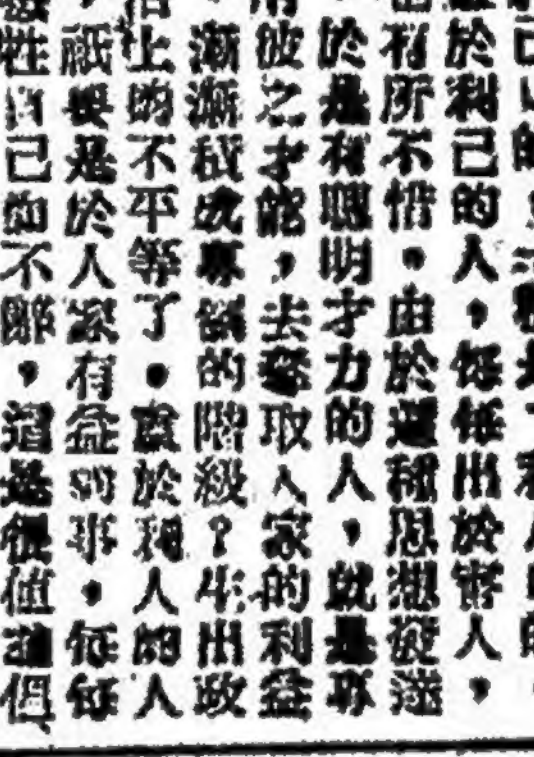 於利己的人，每每出於害人，
有所不惜。由於這種思想發達
於是有聰明才力的人，就是專
彼之才能，去奪取人家的利益
漸漸積成專制的階級？生出政
上的不平等了。重於利人的人
祇要是於人家有益的事，每每
性自己的不辭，這是很值